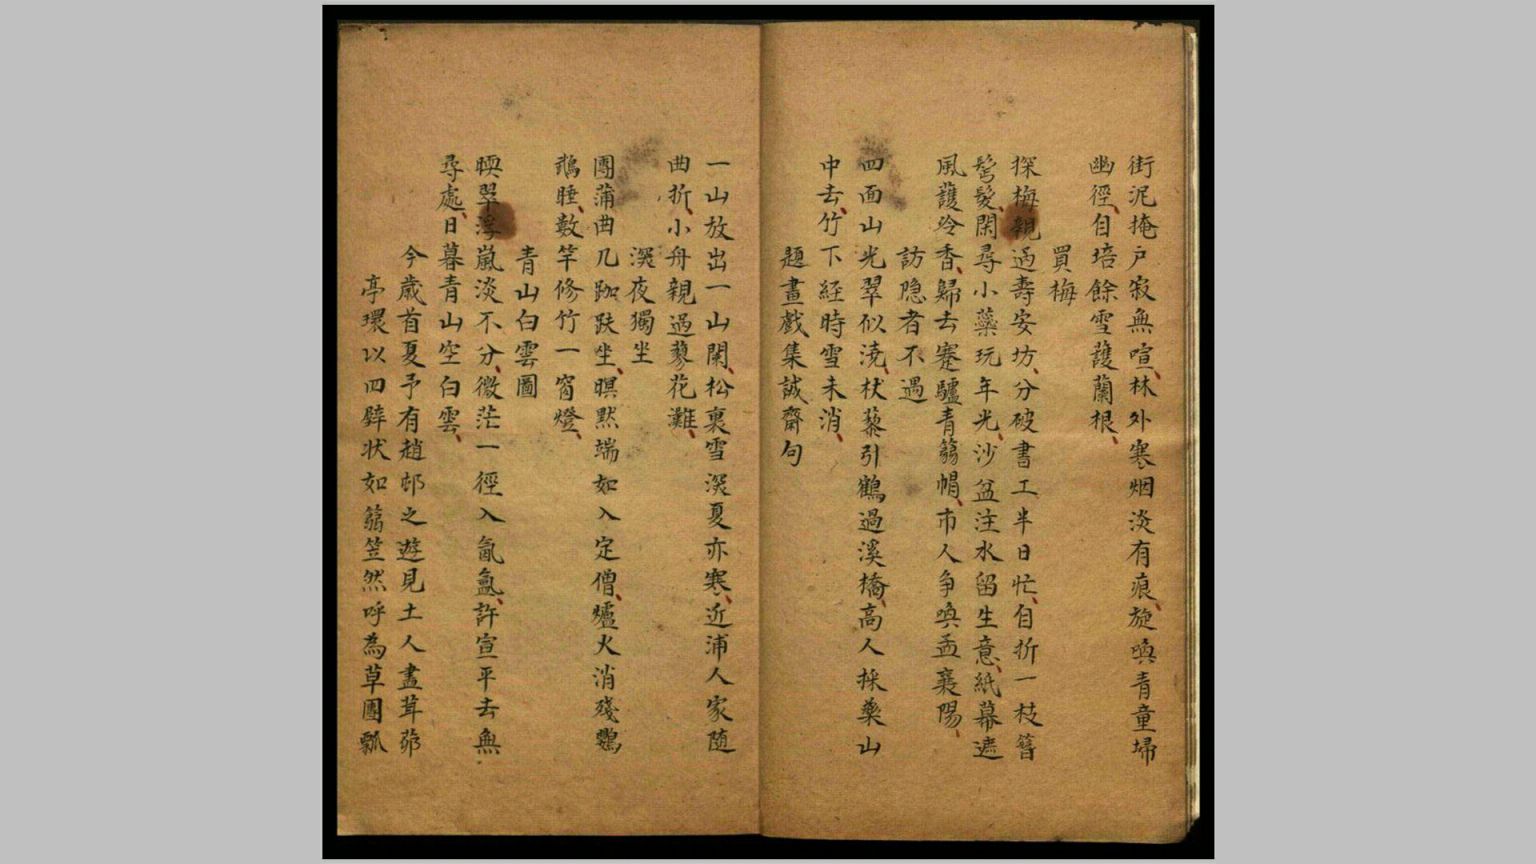 街泥掩户寂無喧林外寒烟淡有痕旋喚青童埽
幽徑自培餘雪護蘭根
買梅
探梅親過壽安坊分破書工半日忙自折一枝簪
髩髮閑尋小藥玩年光沙盆注水留生意紙幕遮
風護冷香歸去蹇驢青篛帽市人争喚孟襄陽
訪隐者不遇
四面山光翠似澆杖藜引鶴過溪橋高人採藥山
中去竹下經時雪未消
題畫戲集誠齋句
一山放出一山闌松裏雪深夏亦寒近浦人家随
曲折小舟親過蓼花灘
深夜獨坐
團蒲曲几跏趺坐暝默端如入定僧爐火消殘鸚
鵡睡數竿修竹一窗燈
青山白雲圖
暎翠浮嵐淡不分微茫一徑入氤氲許宣平去無
尋處日暮青山空白雲
今歲首夏予有趙邨之遊見土人盡茸茆
亭環以四壁状如篛笠然呼為草團瓢